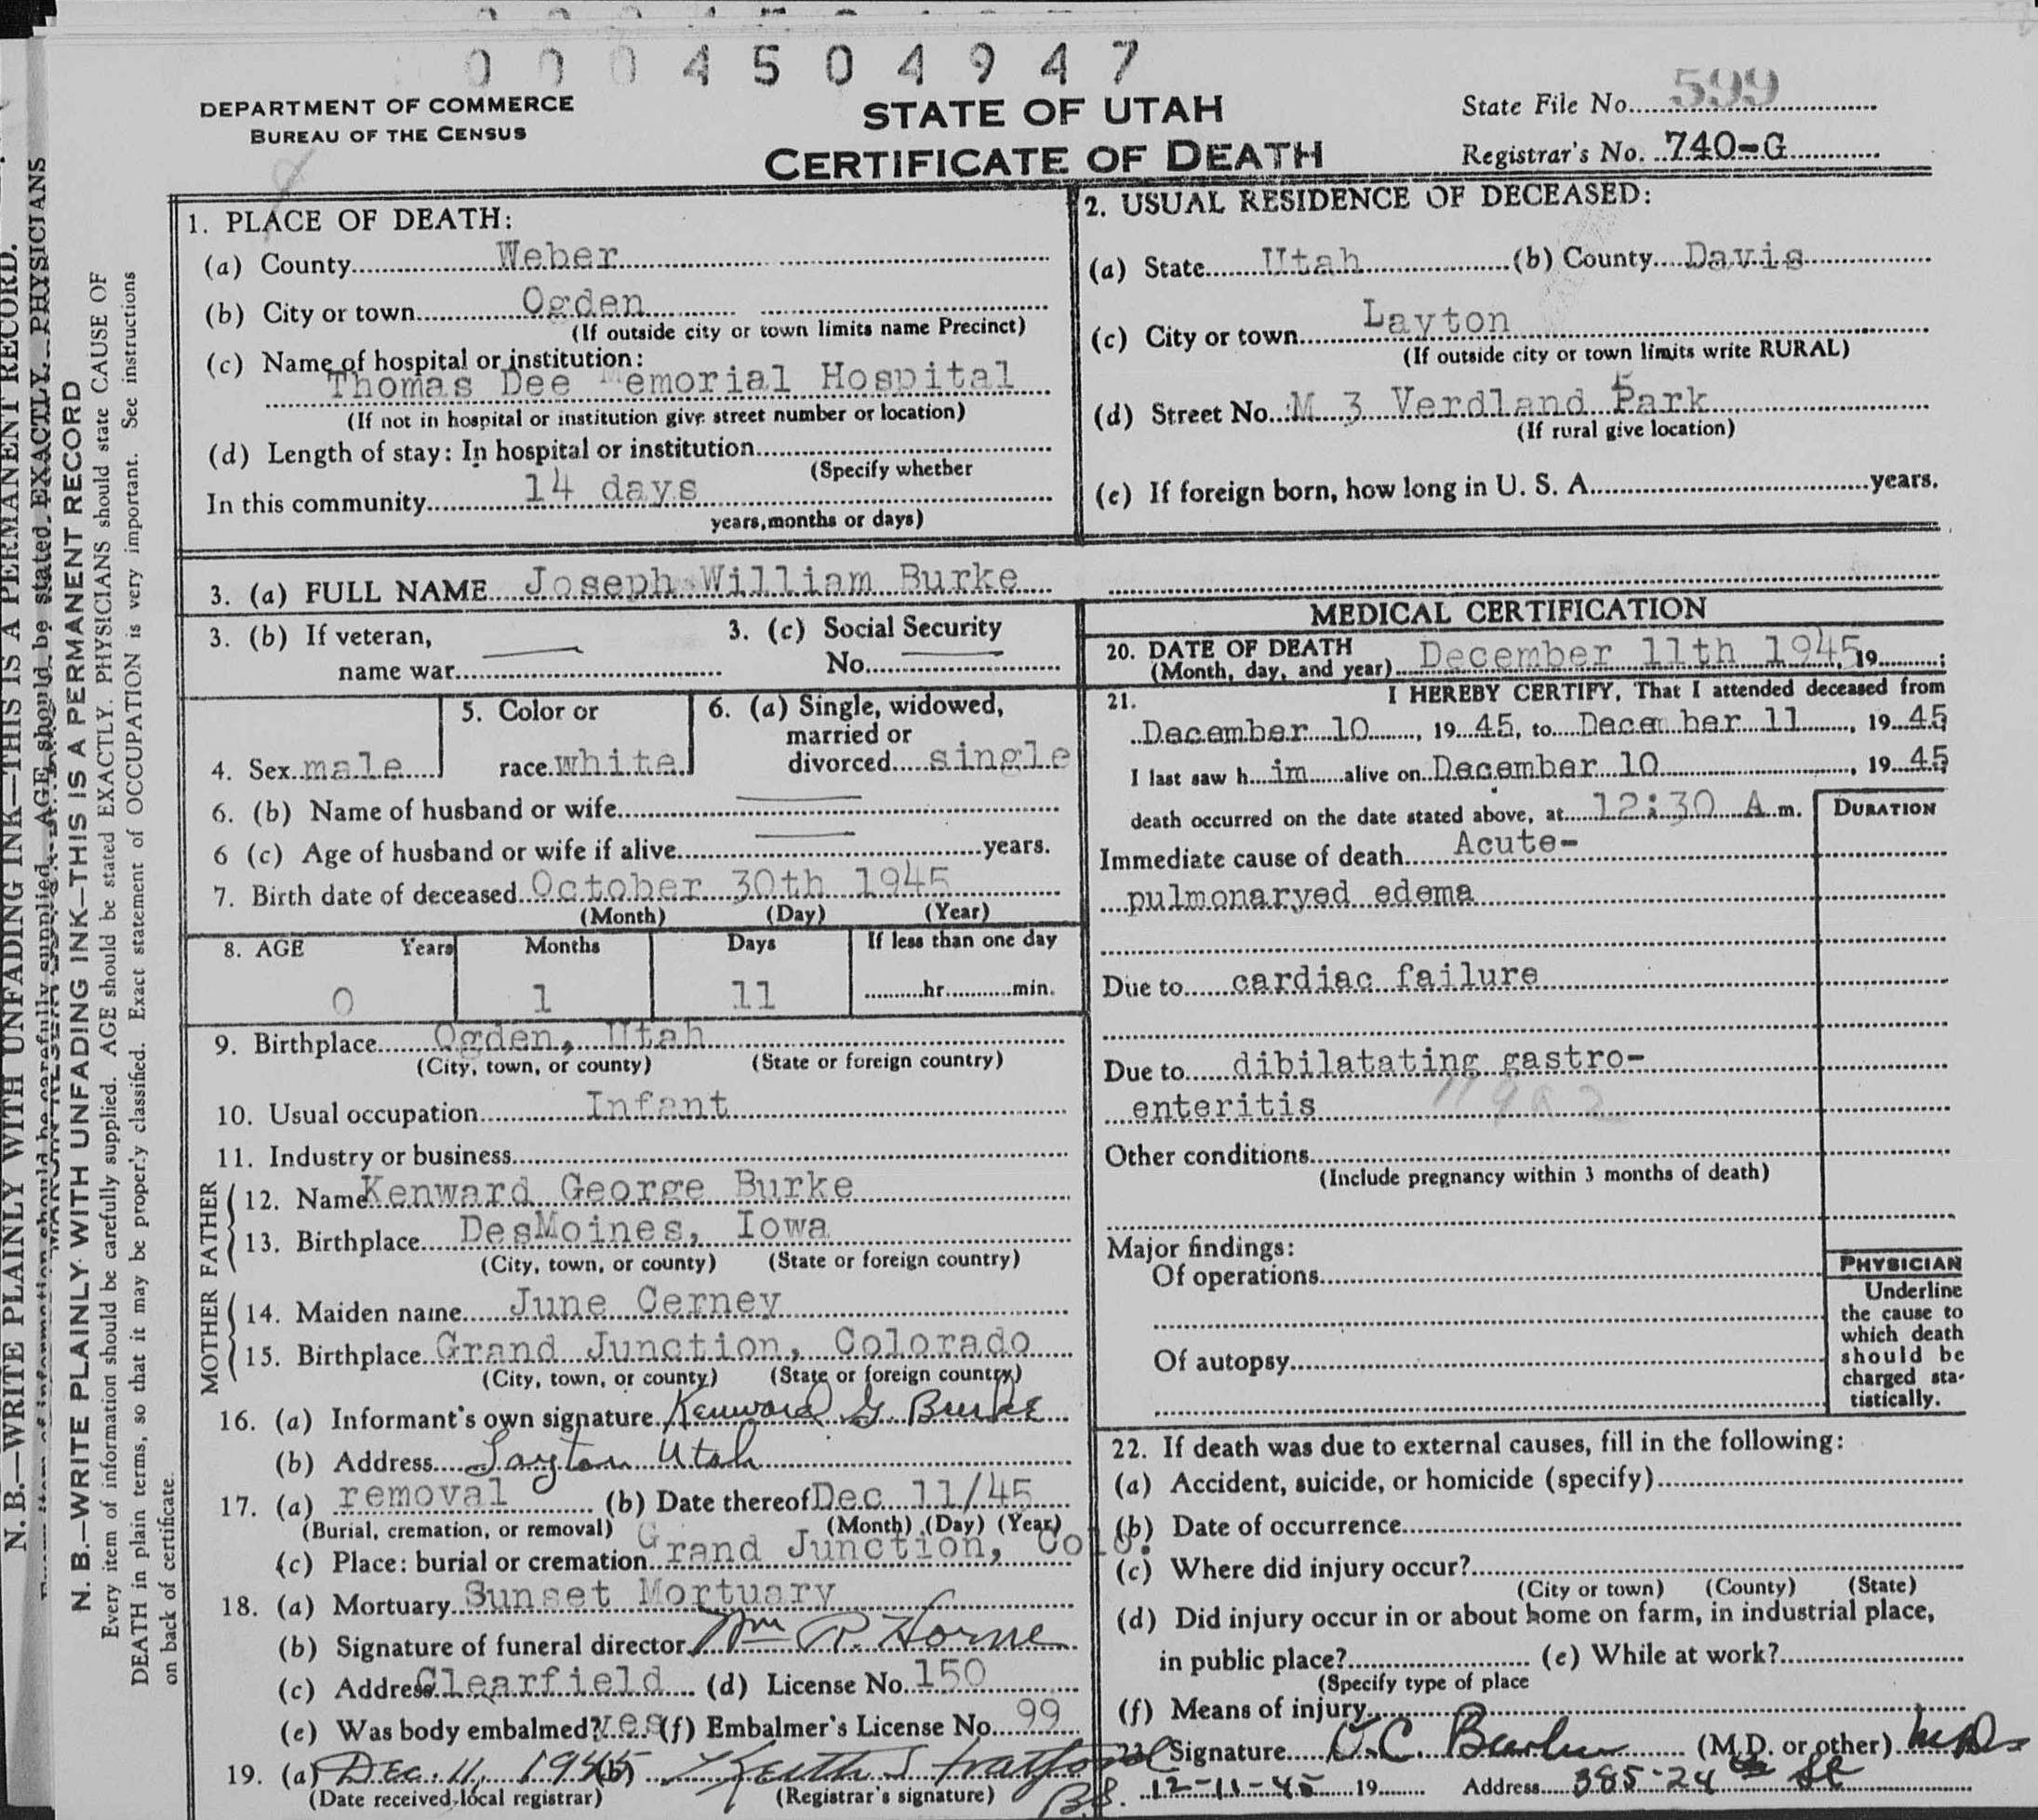 0004504947
DEPARTMENT OF COMMERCE
BUREAU OF THE CENSUS
STATE OF UTAH
CERTIFICATE OF DEATH
State File No. 599
Registrar's No. 740-G
N.B.—WRITE PLAINLY WITH UNFADING INK—THIS IS A PERMANENT RECORD.
N. B.—WRITE PLAINLY WITH UNFADING INK—THIS IS A PERMANENT RECORD
Every item of information should be carefully supplied. AGE should be stated EXACTLY. PHYSICIANS should state CAUSE OF
DEATH in plain terms, so that it may be properly classified. Exact statement of OCCUPATION is very important. See instructions
on back of certificate.
1. PLACE OF DEATH:
(a) County Weber
(b) City or town Ogden
(If outside city or town limits name Precinct)
(c) Name of hospital or institution:
Thomas Dee Memorial Hospital
(If not in hospital or institution give street number or location)
(d) Length of stay: In hospital or institution
(Specify whether
In this community 14 days
years, months or days)
2. USUAL RESIDENCE OF DECEASED:
(a) State Utah (b) County Davis
(c) City or town Layton
(If outside city or town limits write RURAL)
(d) Street No. M 3 Verdland Park
(If rural give location)
(e) If foreign born, how long in U. S. A. years.
3. (a) FULL NAME Joseph William Burke
3. (b) If veteran,
name war
3. (c) Social Security
No.
4. Sex male
5. Color or
race white
6. (a) Single, widowed,
married or
divorced single
6. (b) Name of husband or wife
6 (c) Age of husband or wife if alive years.
7. Birth date of deceased October 30th 1945
(Month) (Day) (Year)
8. AGE Years Months Days If less than one day
0 1 11 hr. min.
9. Birthplace Ogden, Utah
(City, town, or county) (State or foreign country)
10. Usual occupation Infant
11. Industry or business
FATHER
12. Name Kenward George Burke
13. Birthplace DesMoines, Iowa
(City, town, or county) (State or foreign country)
MOTHER
14. Maiden name June Cerney
15. Birthplace Grand Junction, Colorado
(City, town, or county) (State or foreign country)
16. (a) Informant's own signature Kenward G. Burke
(b) Address Layton Utah
17. (a) removal (b) Date thereof Dec 11/45
(Burial, cremation, or removal) (Month) (Day) (Year)
(c) Place: burial or cremation Grand Junction, Colo.
18. (a) Mortuary Sunset Mortuary
(b) Signature of funeral director Wm R. Horne
(c) Address Clearfield (d) License No. 150
(e) Was body embalmed? yes (f) Embalmer's License No. 99
19. (a) Dec. 11, 1945 (b) Keith Stratford
(Date received local registrar) (Registrar's signature)
MEDICAL CERTIFICATION
20. DATE OF DEATH
(Month, day, and year) December 11th 1945 19 ;
21. I HEREBY CERTIFY, That I attended deceased from
December 10, 19 45, to December 11, 19 45
I last saw h im alive on December 10, 19 45
death occurred on the date stated above, at 12:30 A m.
DURATION
Immediate cause of death Acute-
pulmonaryed edema
Due to cardiac failure
Due to dibilatating gastro-
enteritis
Other conditions
(Include pregnancy within 3 months of death)
Major findings:
Of operations
Of autopsy
PHYSICIAN
Underline
the cause to
which death
should be
charged sta-
tistically.
22. If death was due to external causes, fill in the following:
(a) Accident, suicide, or homicide (specify)
(b) Date of occurrence
(c) Where did injury occur?
(City or town) (County) (State)
(d) Did injury occur in or about home on farm, in industrial place,
in public place? (e) While at work?
(Specify type of place
(f) Means of injury
23. Signature (M.D. or other) MD
B.S. 12-11-45 19 Address 385-24th St